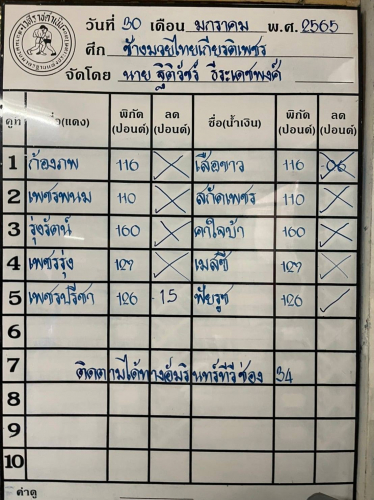 วันที่ 30 เดือน มกราคม พ.ศ. 2565
ศึก ช้างมวยไทยเกียรติเพชร
จัดโดย นาย ฐิติวัชร์ ธีระเดชพงศ์
คู่ที่ ชื่อ(แดง) พิกัด (ปอนด์) ลด (ปอนด์) ชื่อ(น้ำเงิน) พิกัด (ปอนด์) ลด (ปอนด์)
1 ก้องภพ 116 เสือขาว 116 06
2 เพชรพนม 110 สกัดเพชร 110
3 รุ่งรัตน์ 160 คาใจบ้า 160
4 เพชรรุ่ง 127 เมสซี่ 127
5 เพชรปรีชา 126 1.5 พัยรุช 126
6
7 ติดตามได้ทางอัมรินทร์ทีวีช่อง 34
8
9
10
ค่าดู